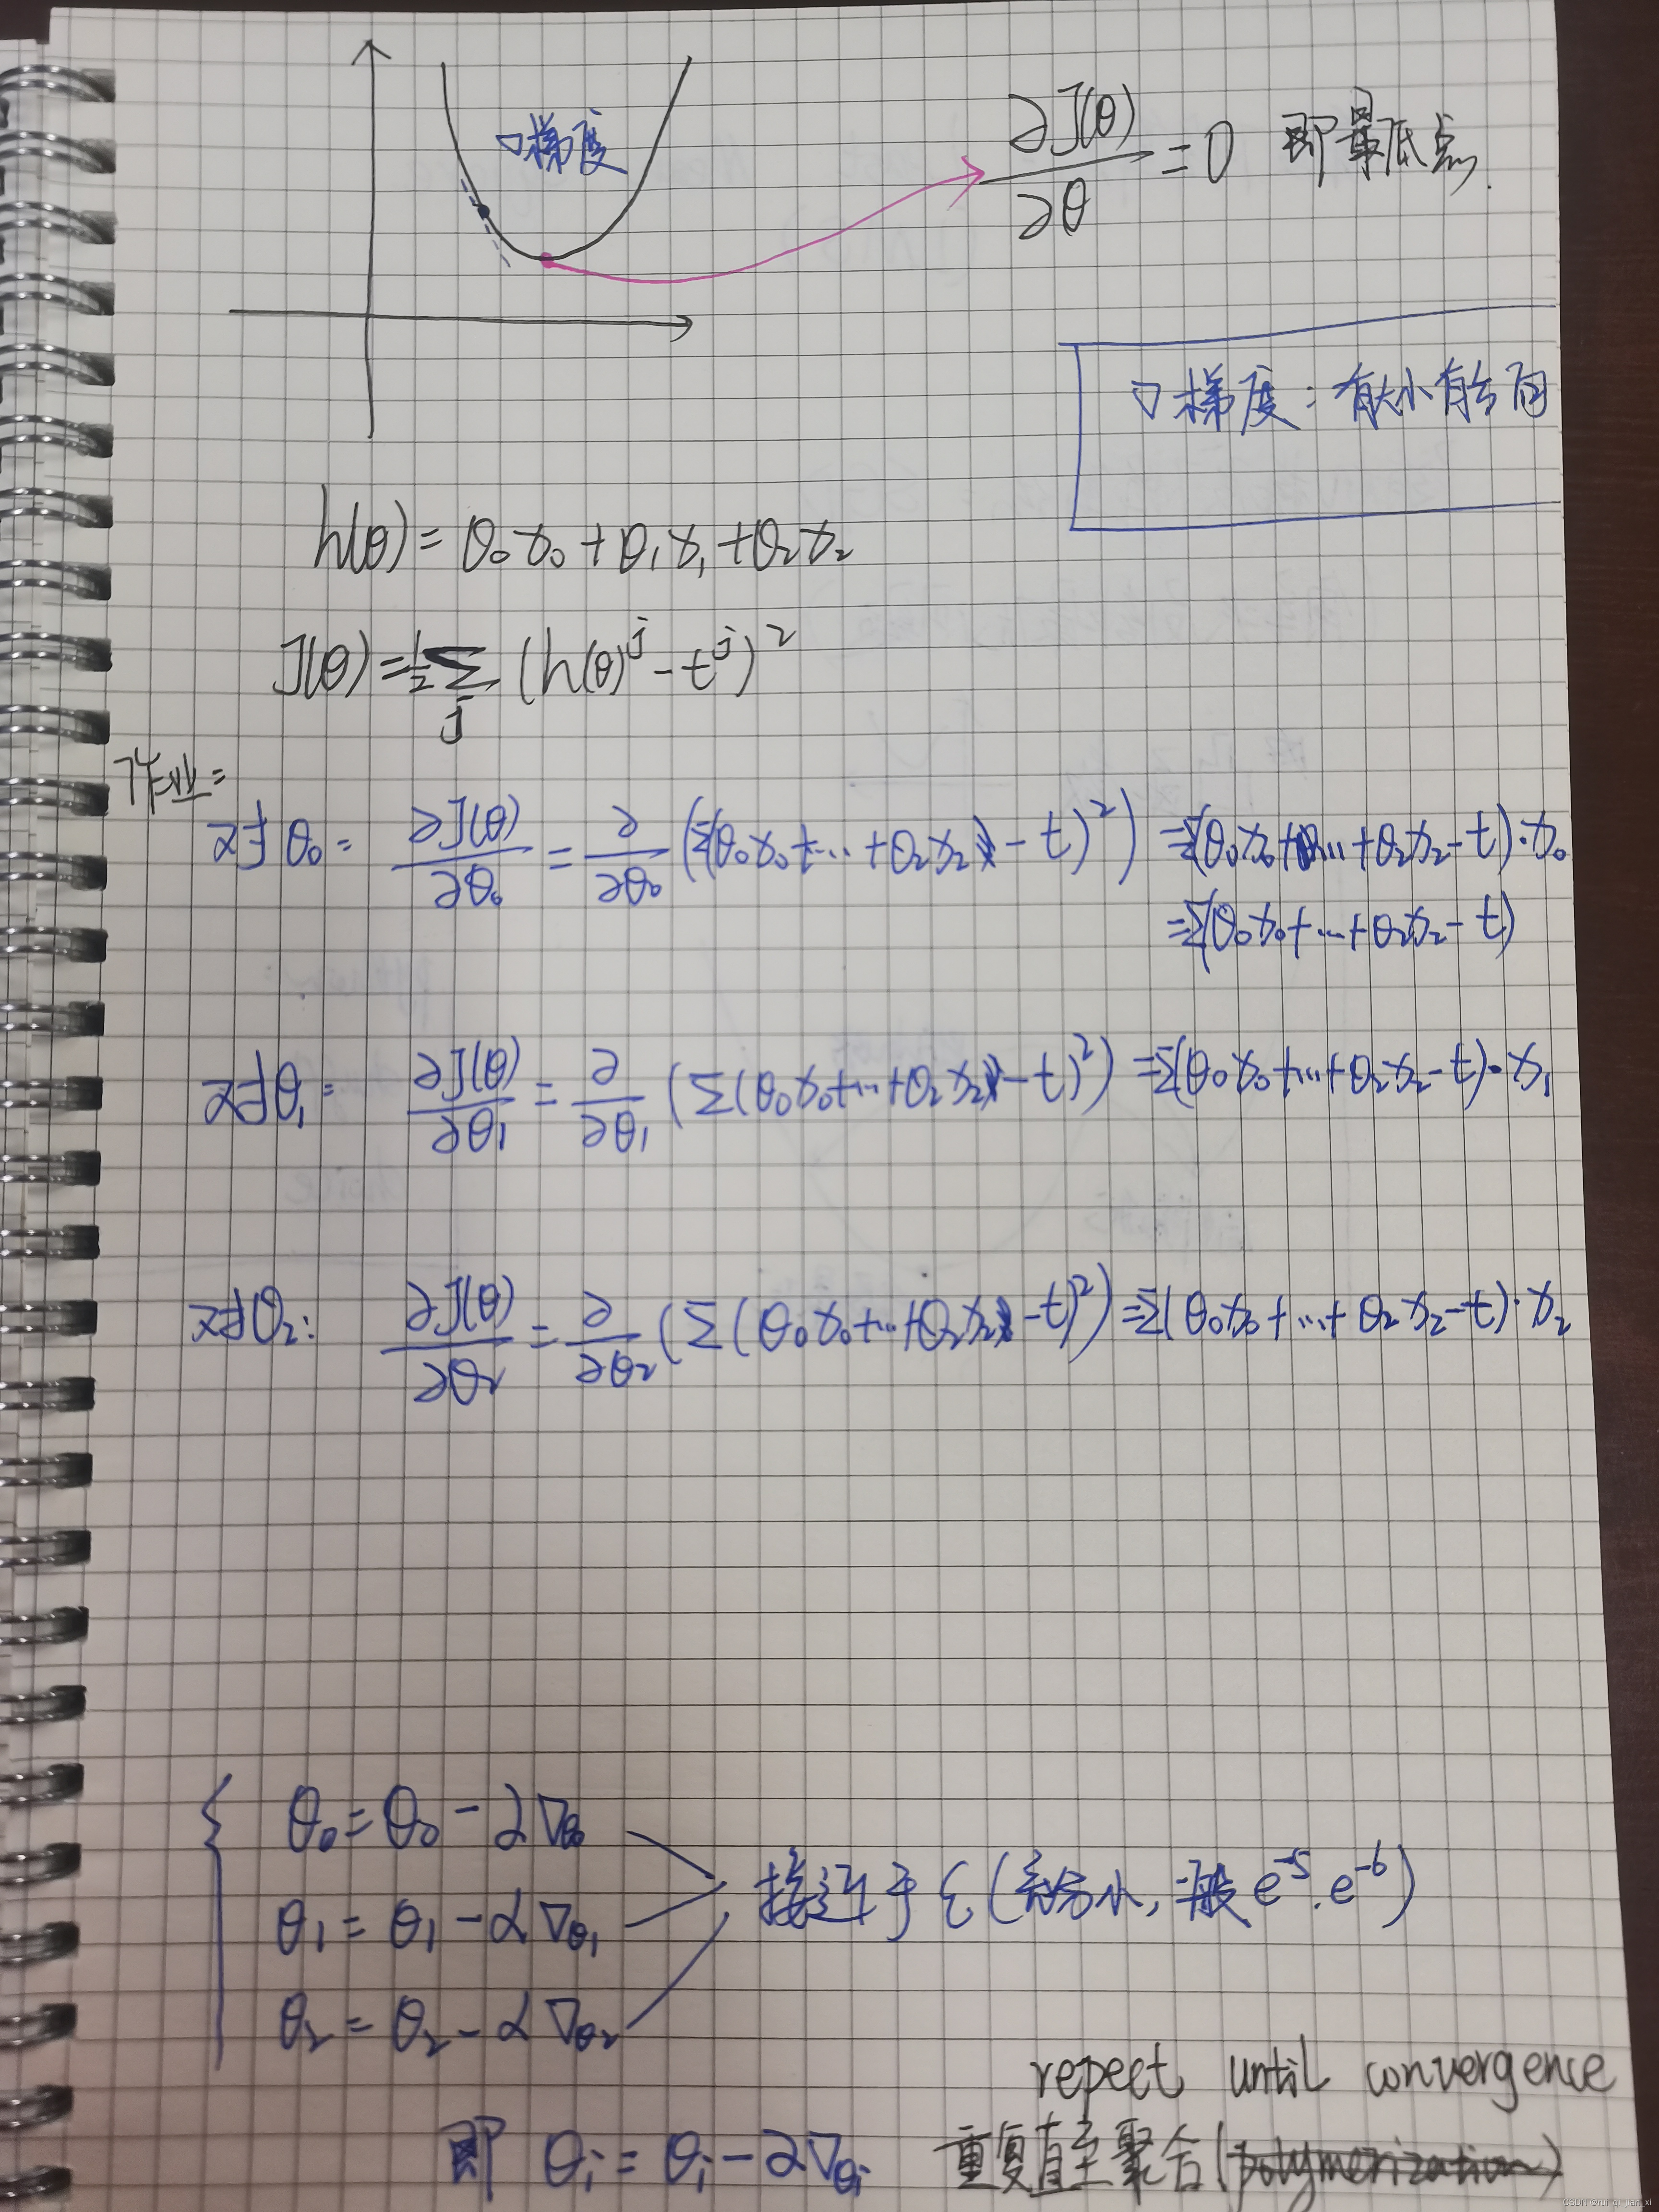 ▽梯度
∂J(θ)/∂θ = 0 即最低点.
▽梯度: 有大小有方向
h(θ) = θ₀x₀ + θ₁x₁ + θ₂x₂
J(θ) = ½ Σⱼ (h(θ)ʲ - tʲ)²
作业:
对θ₀: ∂J(θ)/∂θ₀ = ∂/∂θ₀ (Σ(θ₀x₀+...+θ₂x₂ - t)²) = Σ(θ₀x₀+...+θ₂x₂-t)·x₀
= Σ(θ₀x₀+...+θ₂x₂-t)
对θ₁: ∂J(θ)/∂θ₁ = ∂/∂θ₁ (Σ(θ₀x₀+...+θ₂x₂ - t)²) = Σ(θ₀x₀+...+θ₂x₂-t)·x₁
对θ₂: ∂J(θ)/∂θ₂ = ∂/∂θ₂ (Σ(θ₀x₀+...+θ₂x₂ - t)²) = Σ(θ₀x₀+...+θ₂x₂-t)·x₂
θ₀ = θ₀ - α∇θ₀
θ₁ = θ₁ - α∇θ₁
θ₂ = θ₂ - α∇θ₂
接近于 ξ (充分小, 一般 e⁻⁵. e⁻⁶)
repect until convergence
即 θᵢ = θᵢ - α∇θᵢ 重复直至聚合(polymerization)